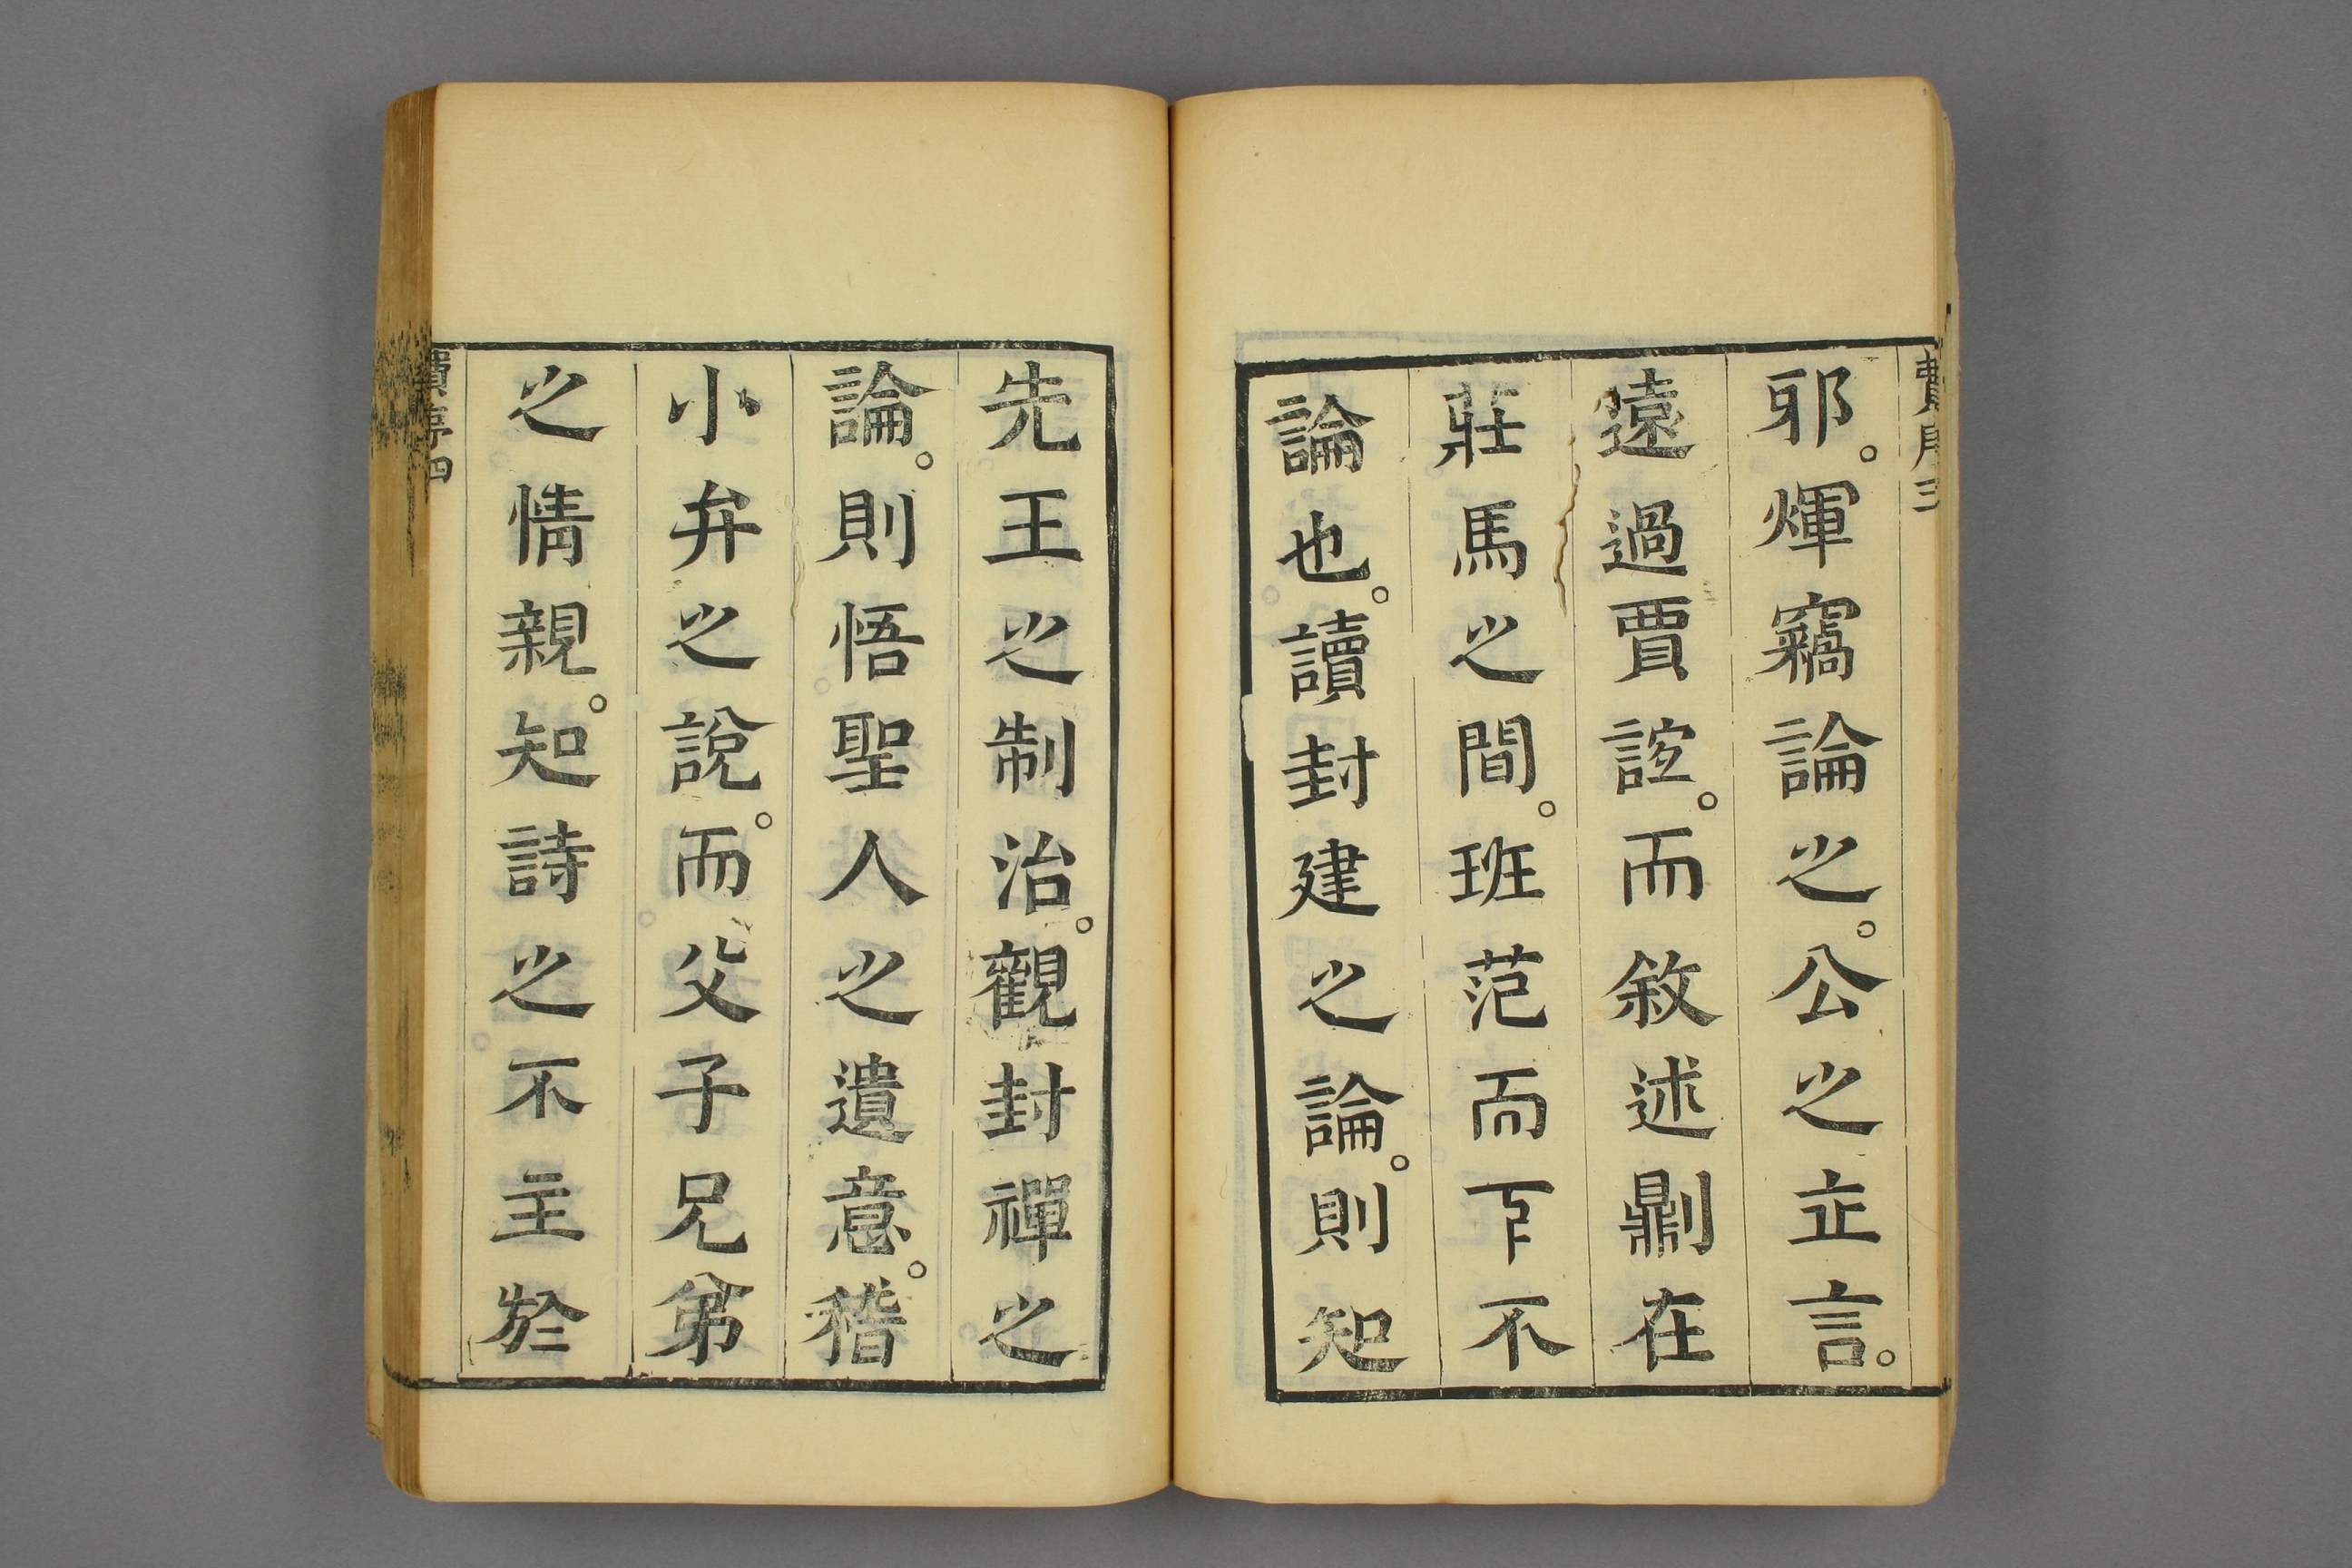 邪。煇竊論之。公之立言。
遠過賈誼。而敘述劘在
莊馬之間。班范而下不
論也。讀封建之論。則知
先王之制治。觀封禪之
論。則悟聖人之遺意。稽
小弁之說。而父子兄弟
之情親。知詩之不主於